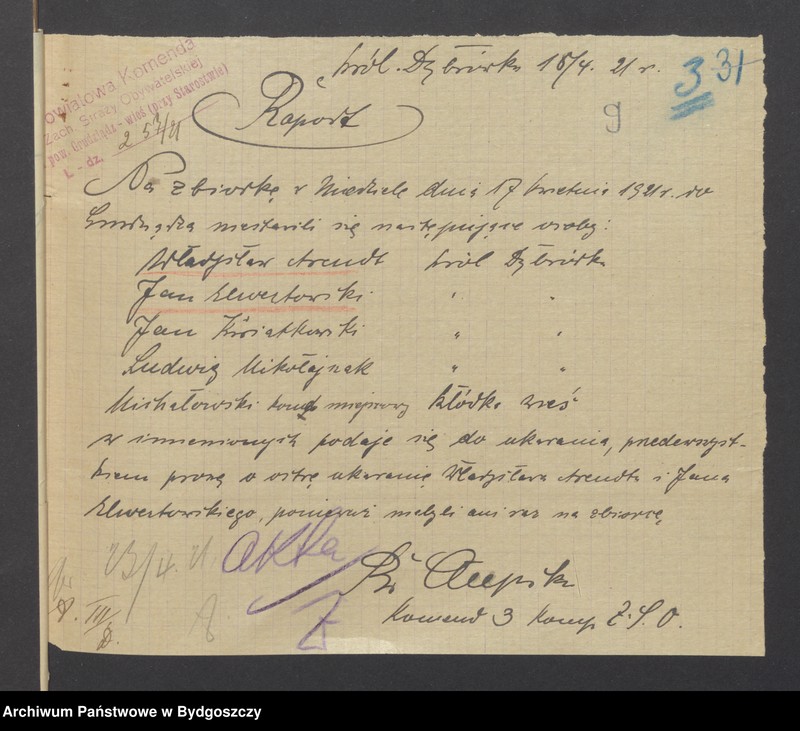 Powiatowa Komenda
Zach. Straży Obywatelskiej
pow. Grudziądz - wieś (przy Starostwie)
L. - dz. 257/21
król. Dąbrówka 18/4. 21 r.
3 31
9
Raport
Na zbiorkę w Niedzielę dnia 17 kwietnia 1921 r. do
Grudządza niestawili się następujące osoby:
Władysław Arendt król Dąbrówka
Jan Elwertowski " "
Jan Kwiatkowski " "
Ludwig Mikołajzak " "
Michałowski komd miejscowy Kłódka wieś
w imienionych podaje się do ukarania, przedewszyst-
kiem proszę o ostrę ukaranię Władysława Arendta i Jana
Elwertowskiego, ponieważ niebyli ani raz na zbiorcę,
23/4. 21. akta
III
Komend 3 Komp. Z. S. O.
Archiwum Państwowe w Bydgoszczy